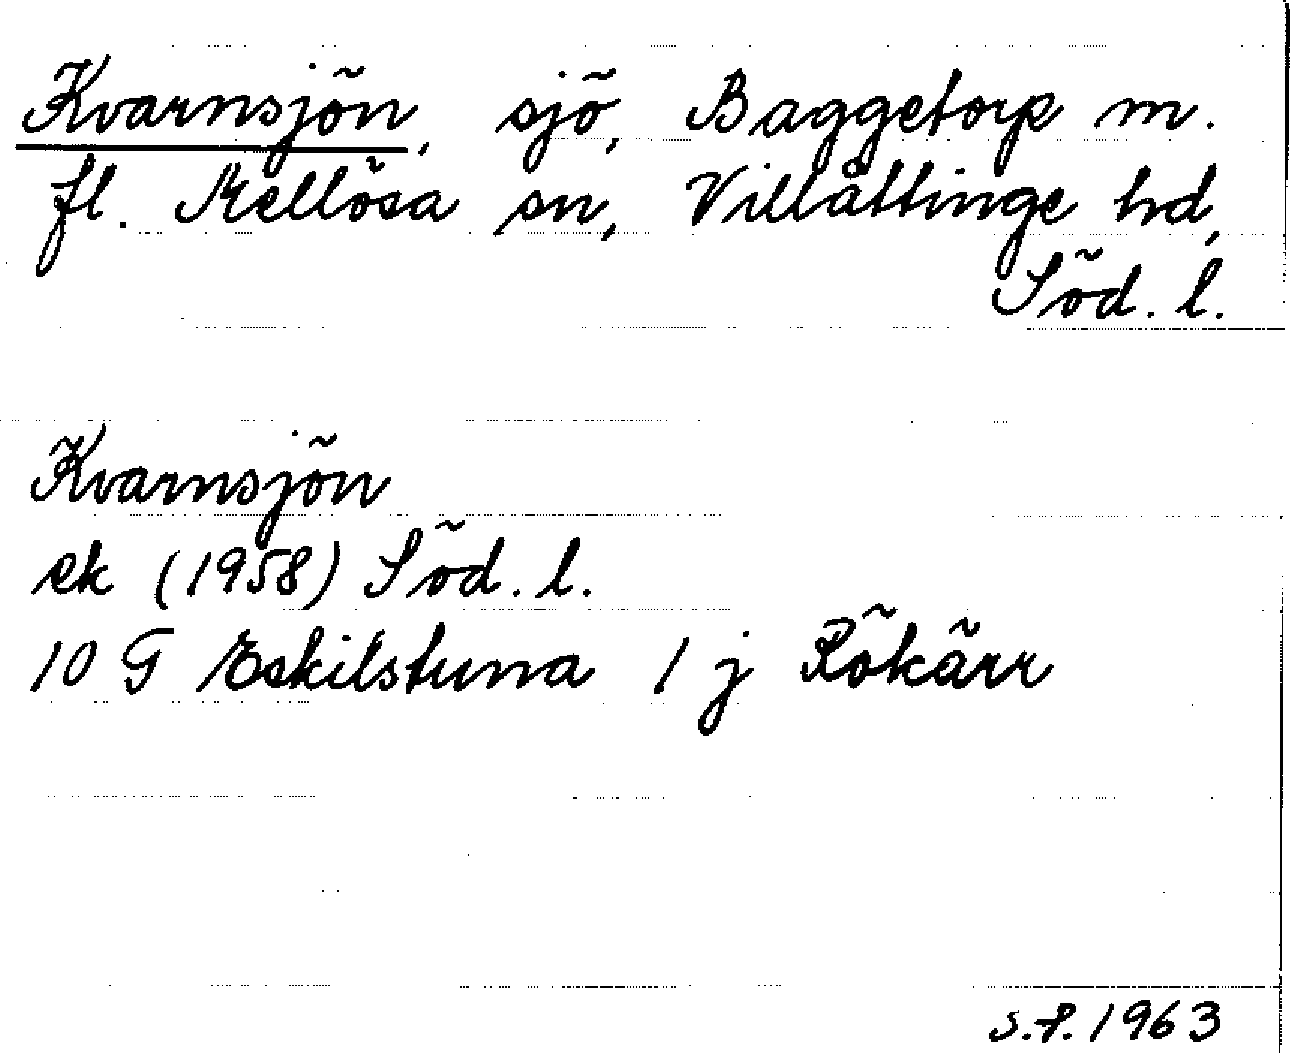 Kvarnsjön, sjö, Baggetorp m.
fl. Mellösa sn, Villåttinge hd,
Söd. l.
Kvarnsjön
ek (1958) Söd. l.
10 G Eskilstuna 1 j Rökärr
s.f. 1963